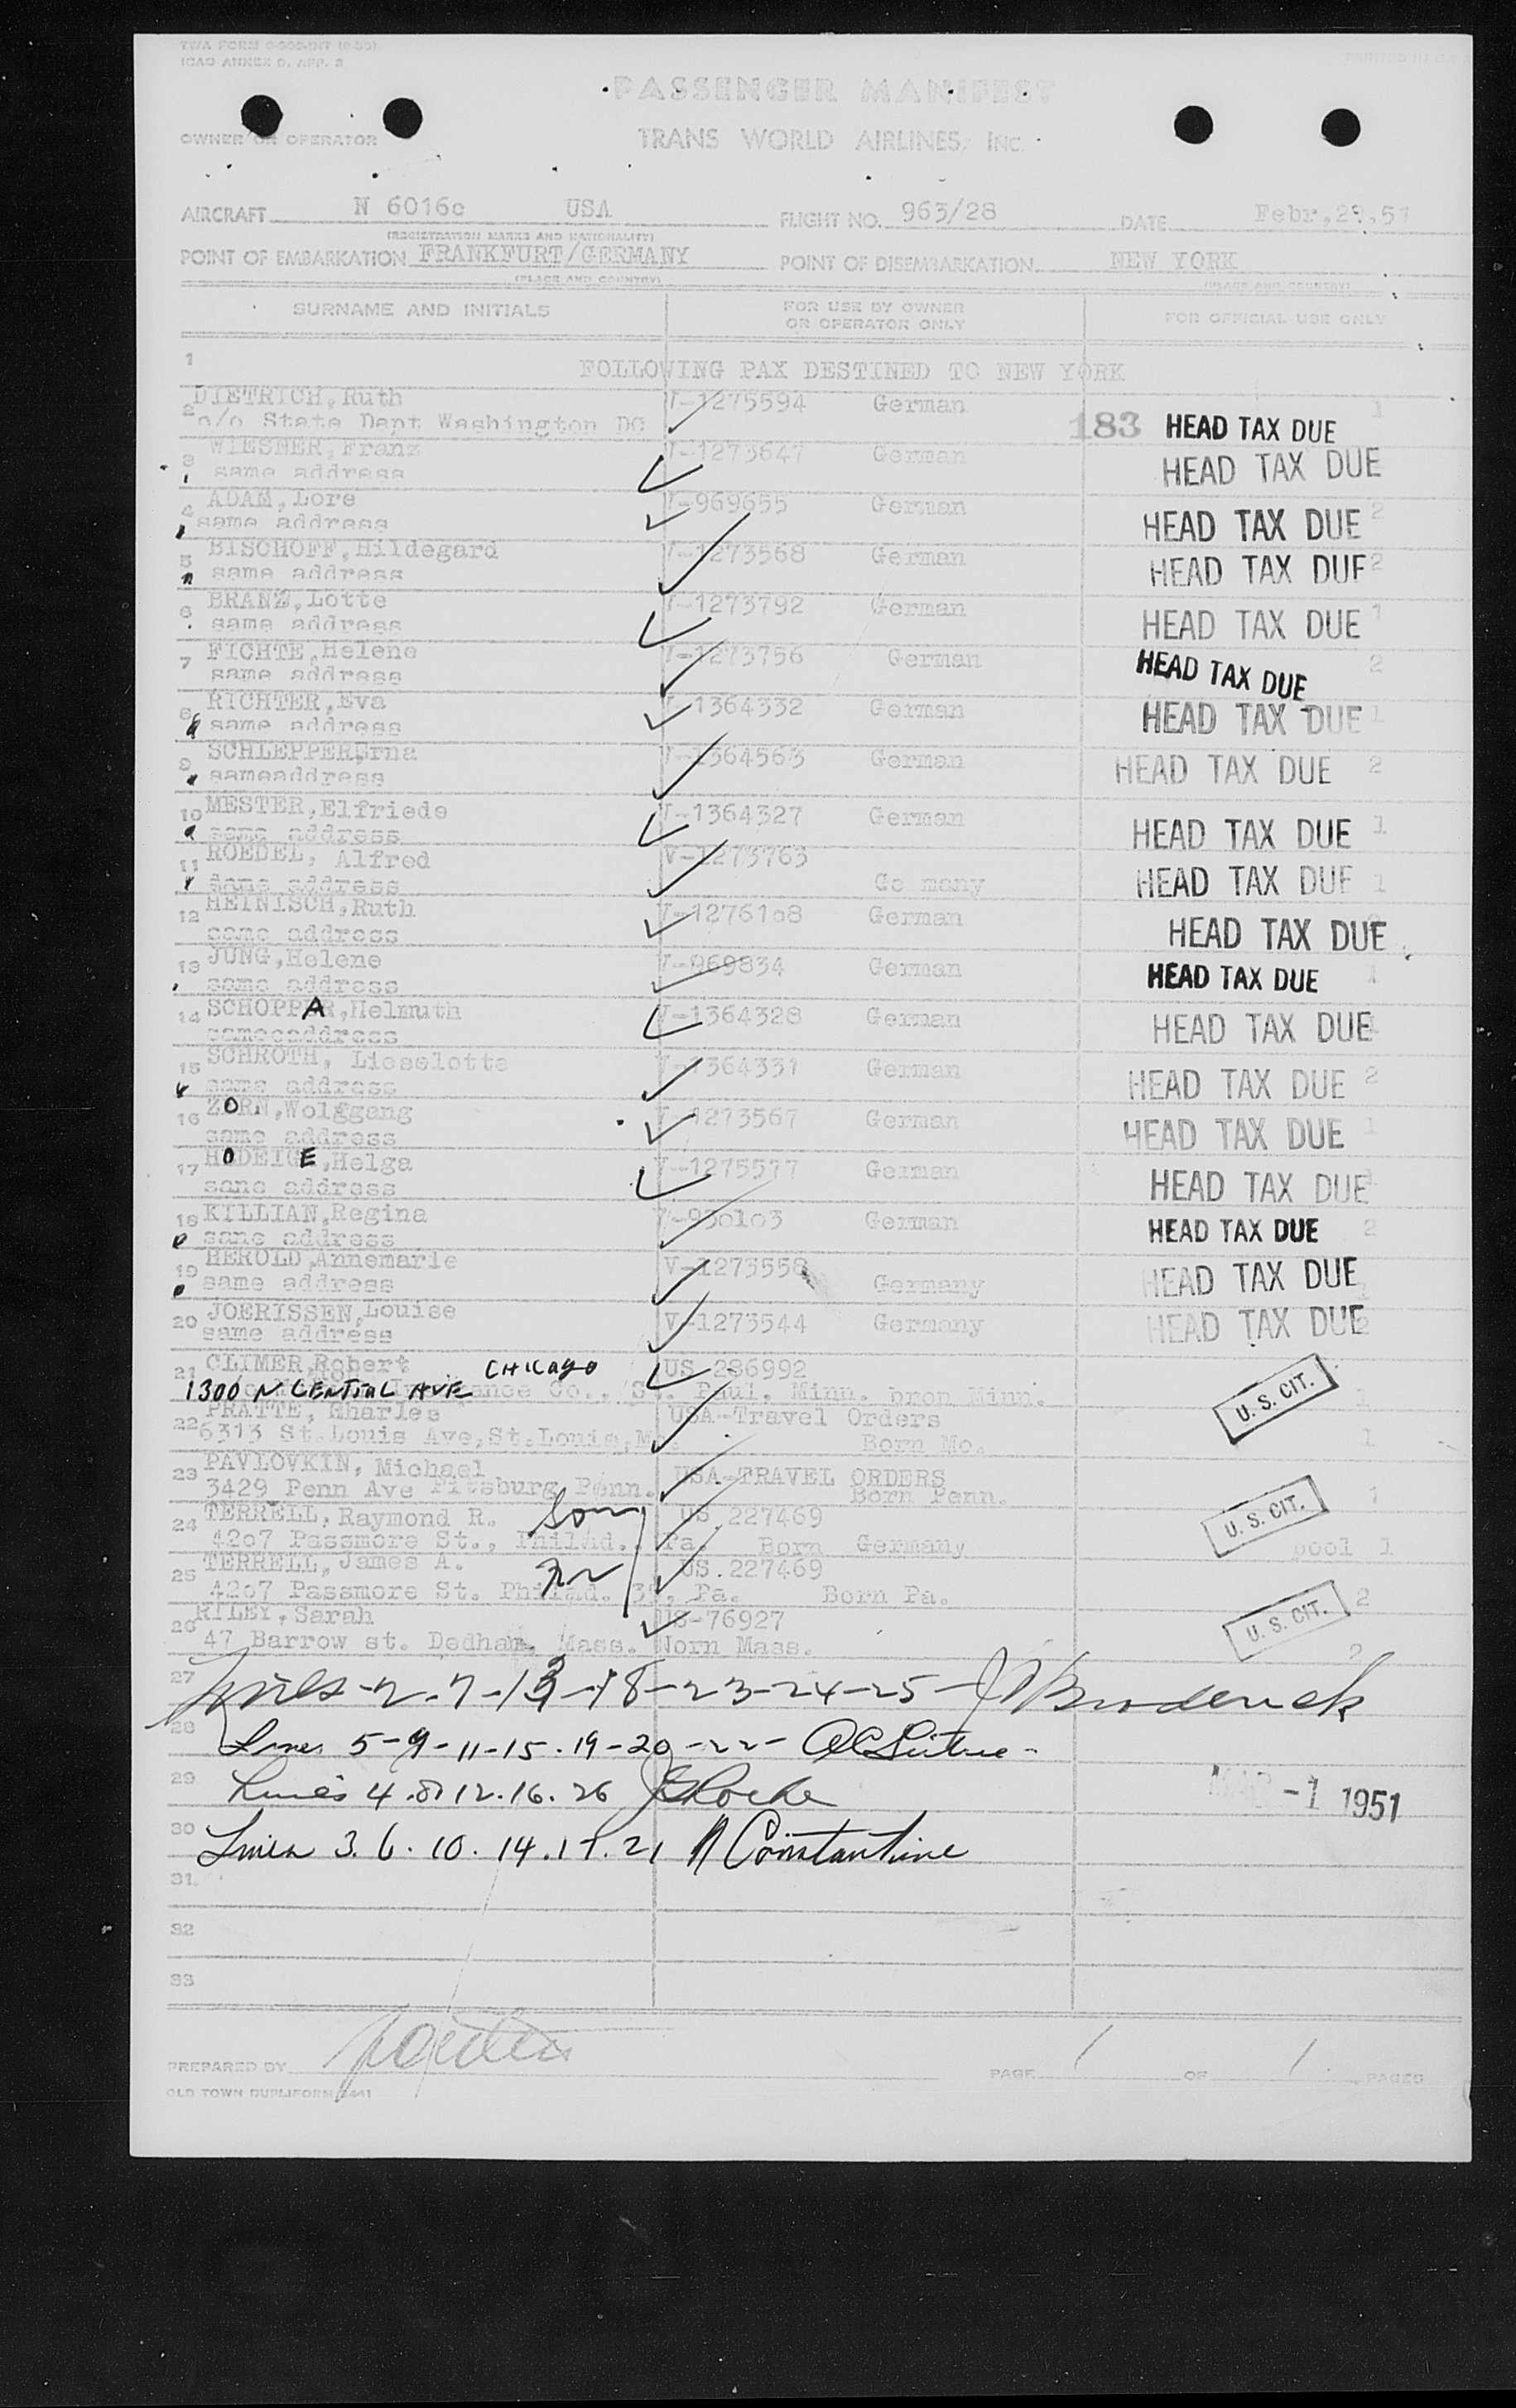 TWA FORM
ICAO ANNEX 9, APP. 
PASSENGER MANIFEST
OWNER OR OPERATOR TRANS WORLD AIRLINES, INC.
AIRCRAFT N 6016c USA FLIGHT NO. 963/28 DATE Febr,28,51
(REGISTRATION MARKS AND NATIONALITY)
POINT OF EMBARKATION FRANKFURT/GERMANY POINT OF DISEMBARKATION NEW YORK
(PLACE AND COUNTRY) (PLACE AND COUNTRY)
SURNAME AND INITIALS FOR USE BY OWNER OR OPERATOR ONLY FOR OFFICIAL USE ONLY
1 FOLLOWING PAX DESTINED TO NEW YORK
DIETRICH,Ruth V-1275594 German 1
2 c/o State Dept Washington DC 183 HEAD TAX DUE
3 WIESNER,Franz V-1273647 German HEAD TAX DUE
same address
4 ADAM,Lore V-969655 German HEAD TAX DUE 2
same address
5 BISCHOFF,Hildegard V-1273568 German HEAD TAX DUE 2
same address
6 BRANZ,Lotte V-1273792 German HEAD TAX DUE 1
same address
7 FICHTE,Helene V-1273756 German HEAD TAX DUE 2
same address
8 RICHTER,Eva V-1364332 German HEAD TAX DUE 1
same address
9 SCHLEPPER,Erna V-1364563 German HEAD TAX DUE 2
sameaddress
10 MESTER,Elfriede V-1364327 German HEAD TAX DUE 1
same address
11 ROEDEL, Alfred V-1273763 Ge many HEAD TAX DUE 1
same address
12 HEINISCH,Ruth V-1276108 German HEAD TAX DUE
same address
13 JUNG,Helene V-969834 German HEAD TAX DUE
same address
14 SCHOPPAR,Helmuth V-1364328 German HEAD TAX DUE
sameoaddress
15 SCHROTH, Lieselotte V-1364331 German HEAD TAX DUE 2
same address
16 ZORN,Wolfgang V-1273567 German HEAD TAX DUE 1
same address
17 HODEIGE,Helga V-1275577 German HEAD TAX DUE
same address
18 KILLIAN,Regina V-930103 German HEAD TAX DUE 2
same address
19 HEROLD,Annemarie V-1273558 Germany HEAD TAX DUE
same address
20 JOERISSEN,Louise V-1273544 Germany HEAD TAX DUE
same address
21 CLIMER,Robert CHICago US 286992 U. S. CIT.
1300 N CENTRAL AVE Co., St. Paul, Minn. bron Minn. 1
22 PRATTE, Charles USA-Travel Orders
6313 St.Louis Ave,St.Louis,Mo. Born Mo. 1
23 PAVLOVKIN, Michael USA-TRAVEL ORDERS
3429 Penn Ave Pitsburg Penn. Born Penn. 1
24 TERRELL, Raymond R. Son US 227469 U. S. CIT.
4207 Passmore St., Philad., Pa. Born Germany pool 1
25 TERRELL, James A. US.227469
4207 Passmore St. Philad. Pa. Born Pa. 2
26 RILEY, Sarah US-76927 U. S. CIT.
47 Barrow st. Dedham, Mass. Norn Mass. 2
27 Lines-2-7-13-18-23-24-25- Broderick
28 Lines 5-9-11-15-19-20-22-
29 Lines 4.8.12.16.26 Roche MAR -1 1951
30 Lines 3.6.10.14.17.21 N Constantine
31
32
33
PREPARED BY PAGE 1 OF 1 PAGES
OLD TOWN DUPLIFORM